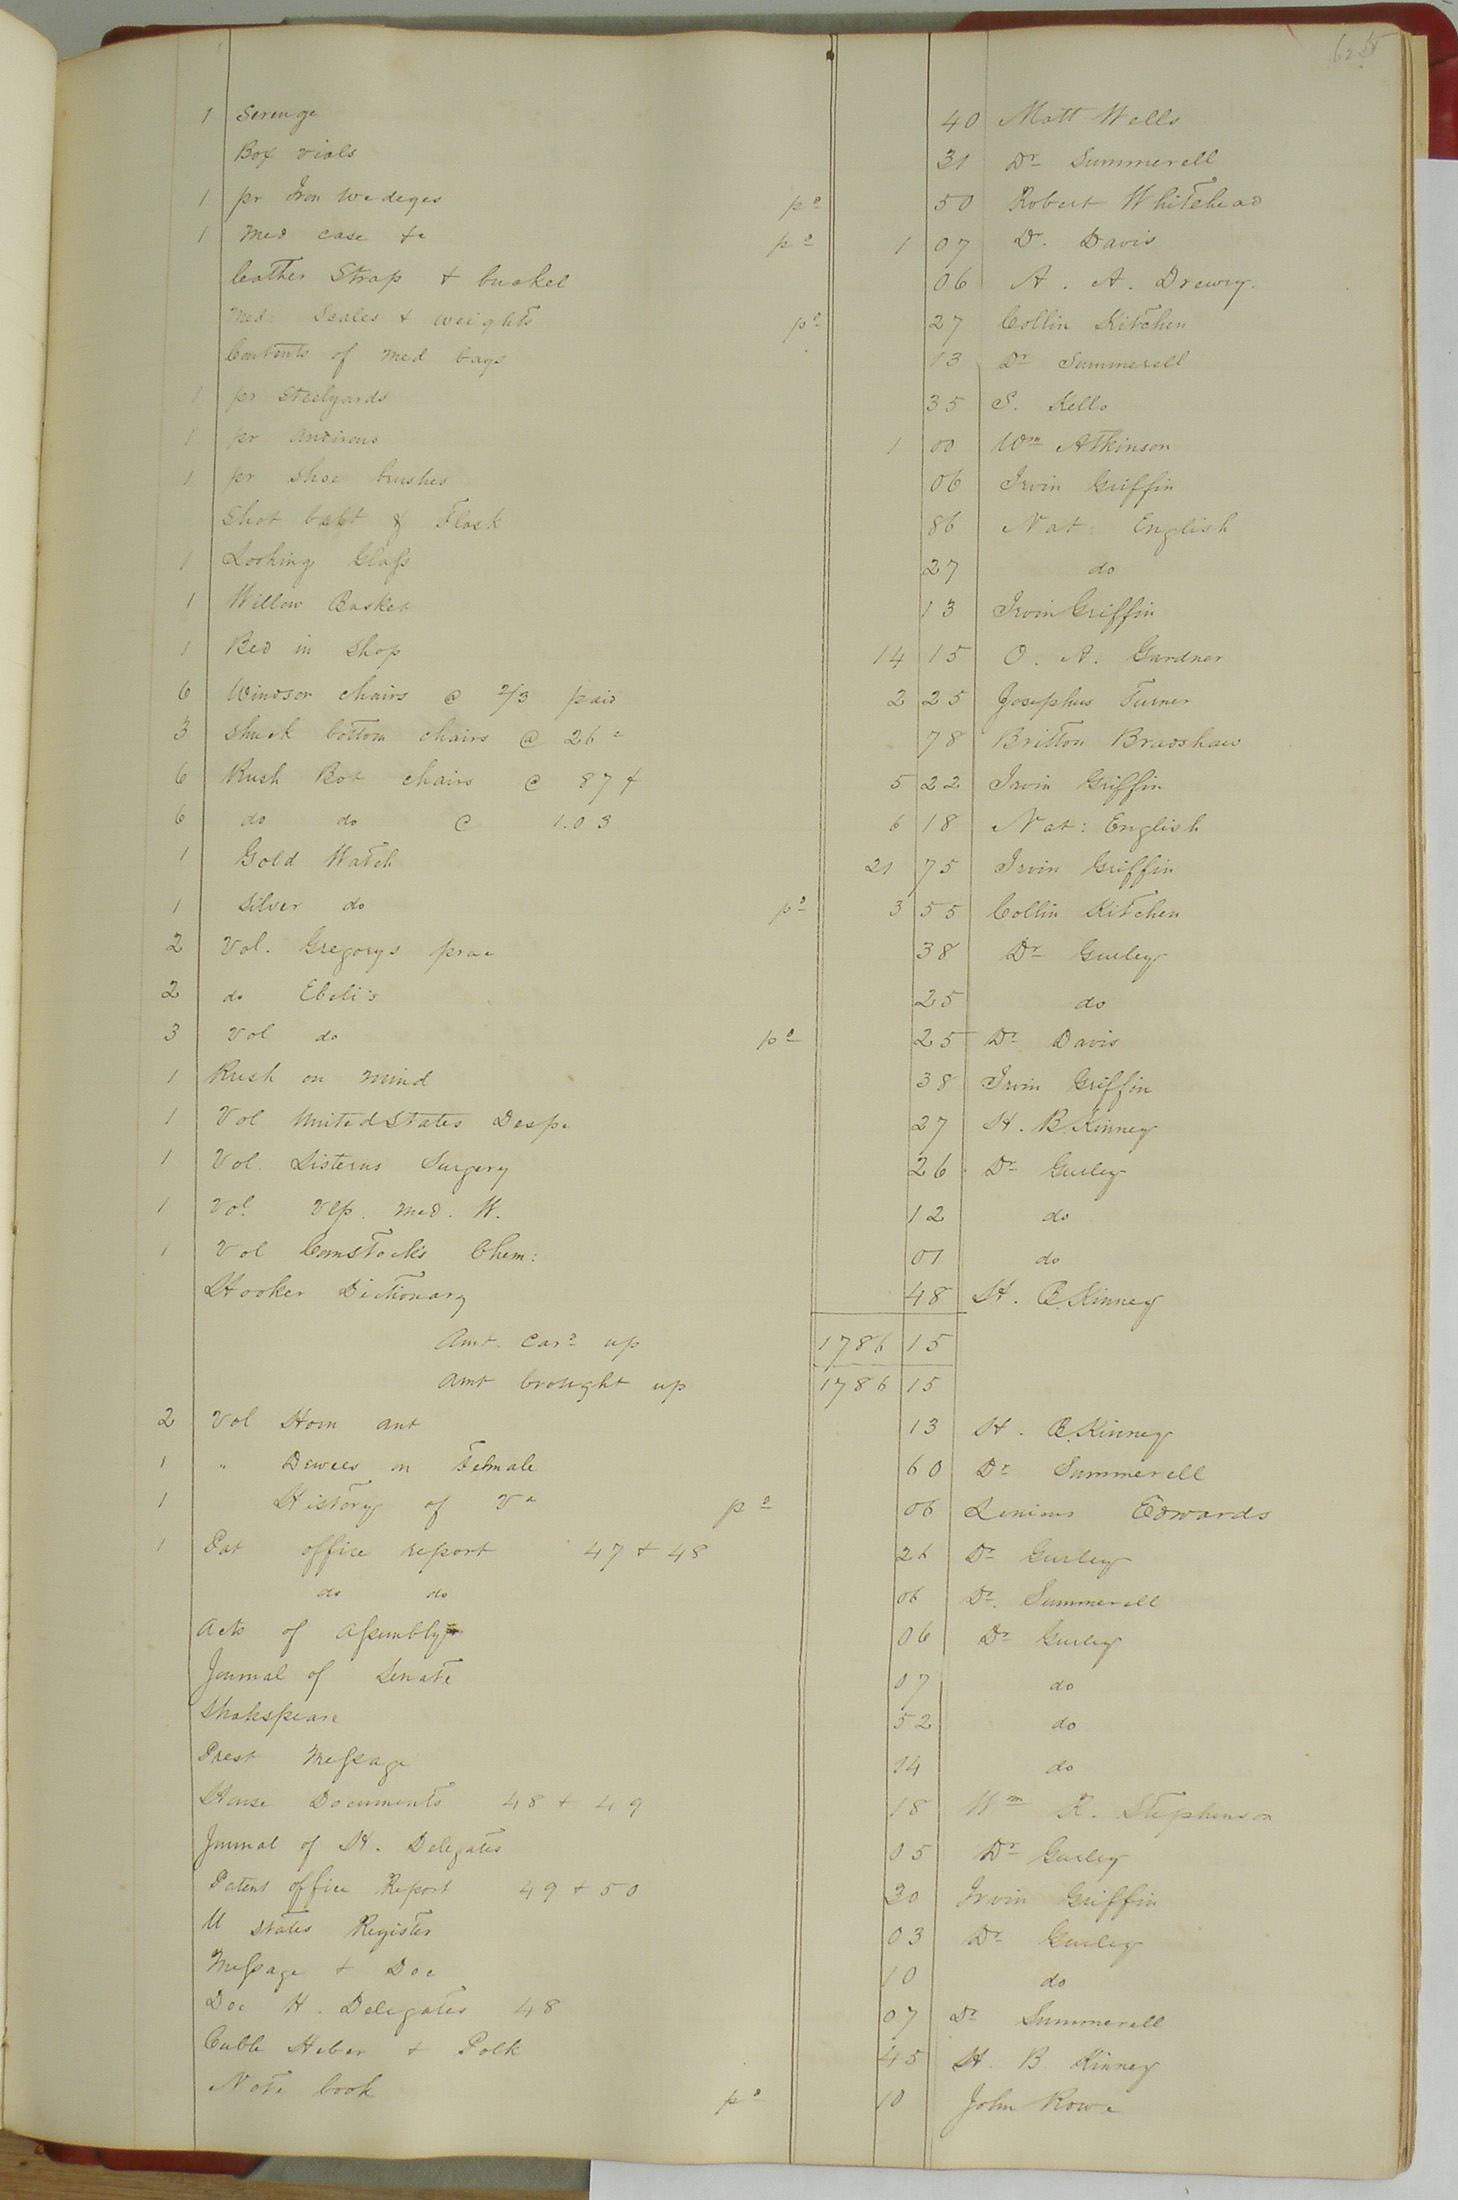 1 Serenge 40 Matt Wells
Box vials 31 Dr Summerell
1 pr Iron Wedeges pd 50 Robert Whitehead
1 Med case &c pd 1 07 Dr. Davis
leather Strap & buckel 06 A. A. Drewry.
Med: Scales & weights pd 27 Collin Kitchen
Contents of Med bags 13 Dr Summerell
1 pr Steelyards 35 S. Kello
1 pr Andirons 1 00 Wm Atkinson
1 pr Shoe brushes 06 Irvin Griffin
Shot & Flask 86 Nat: English
1 Looking Glass 27 do
1 Willow Basket 13 Irvin Griffin
1 Bed in Shop 14 15 O. A. Gardner
6 Windsor chairs @ 2/3 paid 2 25 Josephus Turner
3 Shuck bottom chairs @ 26c 78 Britton Bradshaw
6 Rush Bot chairs @ 87¢ 5 22 Irvin Griffin
6 do do @ 1.03 6 18 Nat: English
1 Gold Watch 21 75 Irvin Griffin
1 Silver do pd 3 55 Collin Kitchen
2 Vol. Gregorys prac 38 Dr Gurley
2 do Ebeli's 25 do
3 Vol do pd 25 Dr Davis
1 Rush on Mind 38 Irvin Griffin
1 Vol United States Despe 27 H. B. Kinney
1 Vol. Listerns Surgery 26 Dr Gurley
1 Vol Vep. Med. W. 12 do
1 Vol Comstock's Chem: 01 do
Hooker Dictionary 48 H. B. Kinney
Amt. Card up 1786 15
Amt brought up 1786 15
2 Vol Horn ant 13 H. B. Kinney
1 " Dewees on Female 60 Dr Summerell
1 History of Va pd 06 Edwards
1 Pat office report 47 & 48 26 Dr Gurley
do do 06 Dr. Summerell
Acts of Assembly 06 Dr Gurley
Journal of Senate 07 do
Shakspeare 52 do
Prest Message 14 do
House Documents 48 & 49 18 Wm R. Stephenson
Jurnal of H. Delegates 05 Dr Gurley
Patent office Report 49 & 50 30 Irvin Griffin
U States Register 03 Dr Gurley
Message & Doc 10 do
Doc H. Delegates 48 07 Dr Summerell
Heber & Polk 45 H. B. Kinney
Note book pd 10 John Rowe